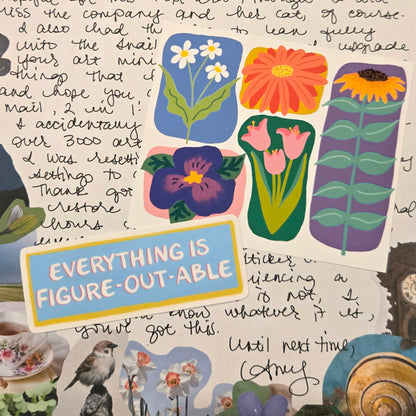 ress the company and her cat, of course.
I also had th to lean fully
into the snai upgrade
your art mini
things that
and hope you c
mail, 2 in 1
I accidentally
over 3000 art
I was resetti
settings to
Thank goo
restore
hours
EVERYTHING IS
FIGURE-OUT-ABLE
sticker
encing a
is not, I
know whatever it is,
you've got this.
Until next time,
Amy